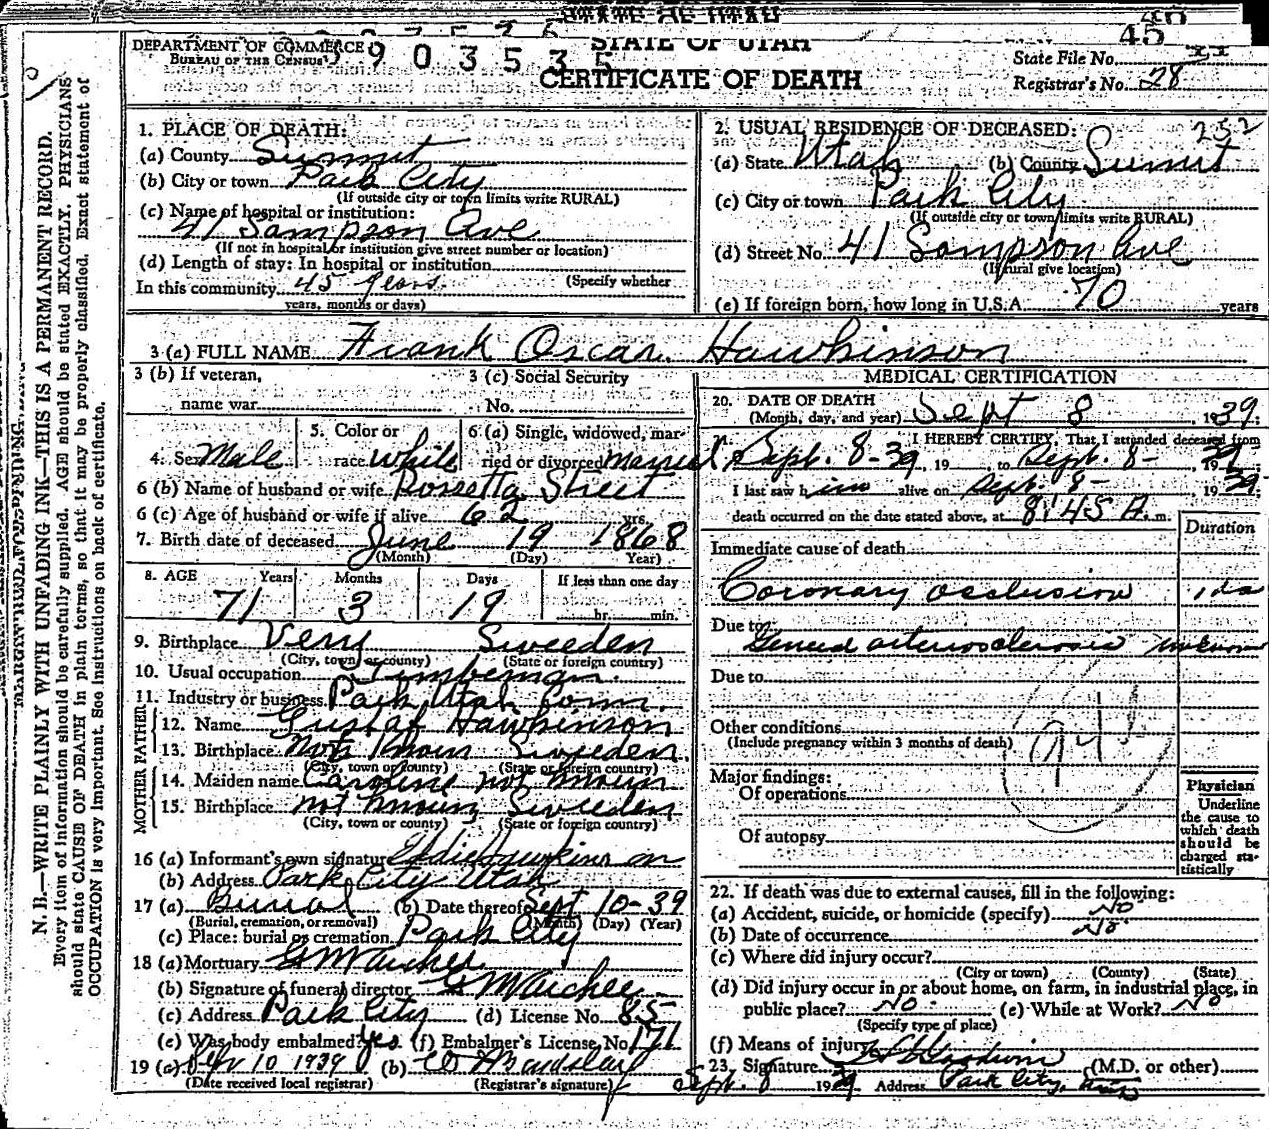 STATE OF UTAH
45
DEPARTMENT OF COMMERCE
BUREAU OF THE CENSUS
9 0 3 5 3 5
STATE OF UTAH
CERTIFICATE OF DEATH
State File No.
Registrar's No. 28
N. B.—WRITE PLAINLY WITH UNFADING INK—THIS IS A PERMANENT RECORD.
Every item of information should be carefully supplied. AGE should be stated EXACTLY. PHYSICIANS
should state CAUSE OF DEATH in plain terms, so that it may be properly classified. Exact statement of
OCCUPATION is very important. See instructions on back of certificate.
1. PLACE OF DEATH:
(a) County Summit
(b) City or town Park City
(If outside city or town limits write RURAL)
(c) Name of hospital or institution:
41 Sampson Ave
(If not in hospital or institution give street number or location)
(d) Length of stay: In hospital or institution
(Specify whether
In this community 45 years
years, months or days)
2. USUAL RESIDENCE OF DECEASED: 252
(a) State Utah (b) County Summit
(c) City or town Park City
(If outside city or town limits write RURAL)
(d) Street No. 41 Sampson Ave
(If rural give location)
(e) If foreign born, how long in U.S.A. 70 years
3 (a) FULL NAME Frank Oscar Hawkinson
3 (b) If veteran,
name war
3 (c) Social Security
No.
4. Sex Male
5. Color or
race White
6 (a) Single, widowed, mar-
ried or divorced Married
6 (b) Name of husband or wife Rossetta Street
6 (c) Age of husband or wife if alive 62 yrs.
7. Birth date of deceased June 19 1868
(Month) (Day) Year)
8. AGE Years Months Days If less than one day
71 3 19 hr. min.
9. Birthplace Very Sweeden
(City, town or county) (State or foreign country)
10. Usual occupation Timberman
11. Industry or business Park Utah Conn.
FATHER
12. Name Gustaf Hawkinson
13. Birthplace Not Known Sweeden
(City, town or county) (State or foreign country)
MOTHER
14. Maiden name Caroline not known
15. Birthplace not known Sweeden
(City, town or county) (State or foreign country)
16 (a) Informant's own signature Eddie Hawkinson
(b) Address Park City Utah
17 (a) Burial (b) Date thereof Sept 10-39
(Burial, cremation, or removal) (Month) (Day) (Year)
(c) Place: burial or cremation Park City
18 (a) Mortuary
(b) Signature of funeral director
(c) Address Park City (d) License No. 85
(e) Was body embalmed? Yes (f) Embalmer's License No. 171
19 (a) 10 1939 (b)
(Date received local registrar) (Registrar's signature)
MEDICAL CERTIFICATION
20. DATE OF DEATH
(Month, day, and year) Sept 8, 1939.
21. I HEREBY CERTIFY, That I attended deceased from
Sept. 8-39, 19 , to Sept. 8- 1939
I last saw him alive on Sept. 8- 1939.
death occurred on the date stated above, at 8:45 A.m.
Duration
Immediate cause of death
Coronary occlusion 1 da
Due to
General arteriosclerosis unknown
Due to
Other conditions
(Include pregnancy within 3 months of death)
94
Major findings:
Of operations
Of autopsy
Physician
Underline
the cause to
which death
should be
charged sta-
tistically
22. If death was due to external causes, fill in the following:
(a) Accident, suicide, or homicide (specify) No
(b) Date of occurrence No
(c) Where did injury occur?
(City or town) (County) (State)
(d) Did injury occur in or about home, on farm, in industrial place, in
public place? No (e) While at Work? No
(Specify type of place)
(f) Means of injury
23. Signature (M.D. or other)
Sept. 8 1939 Address Park City,